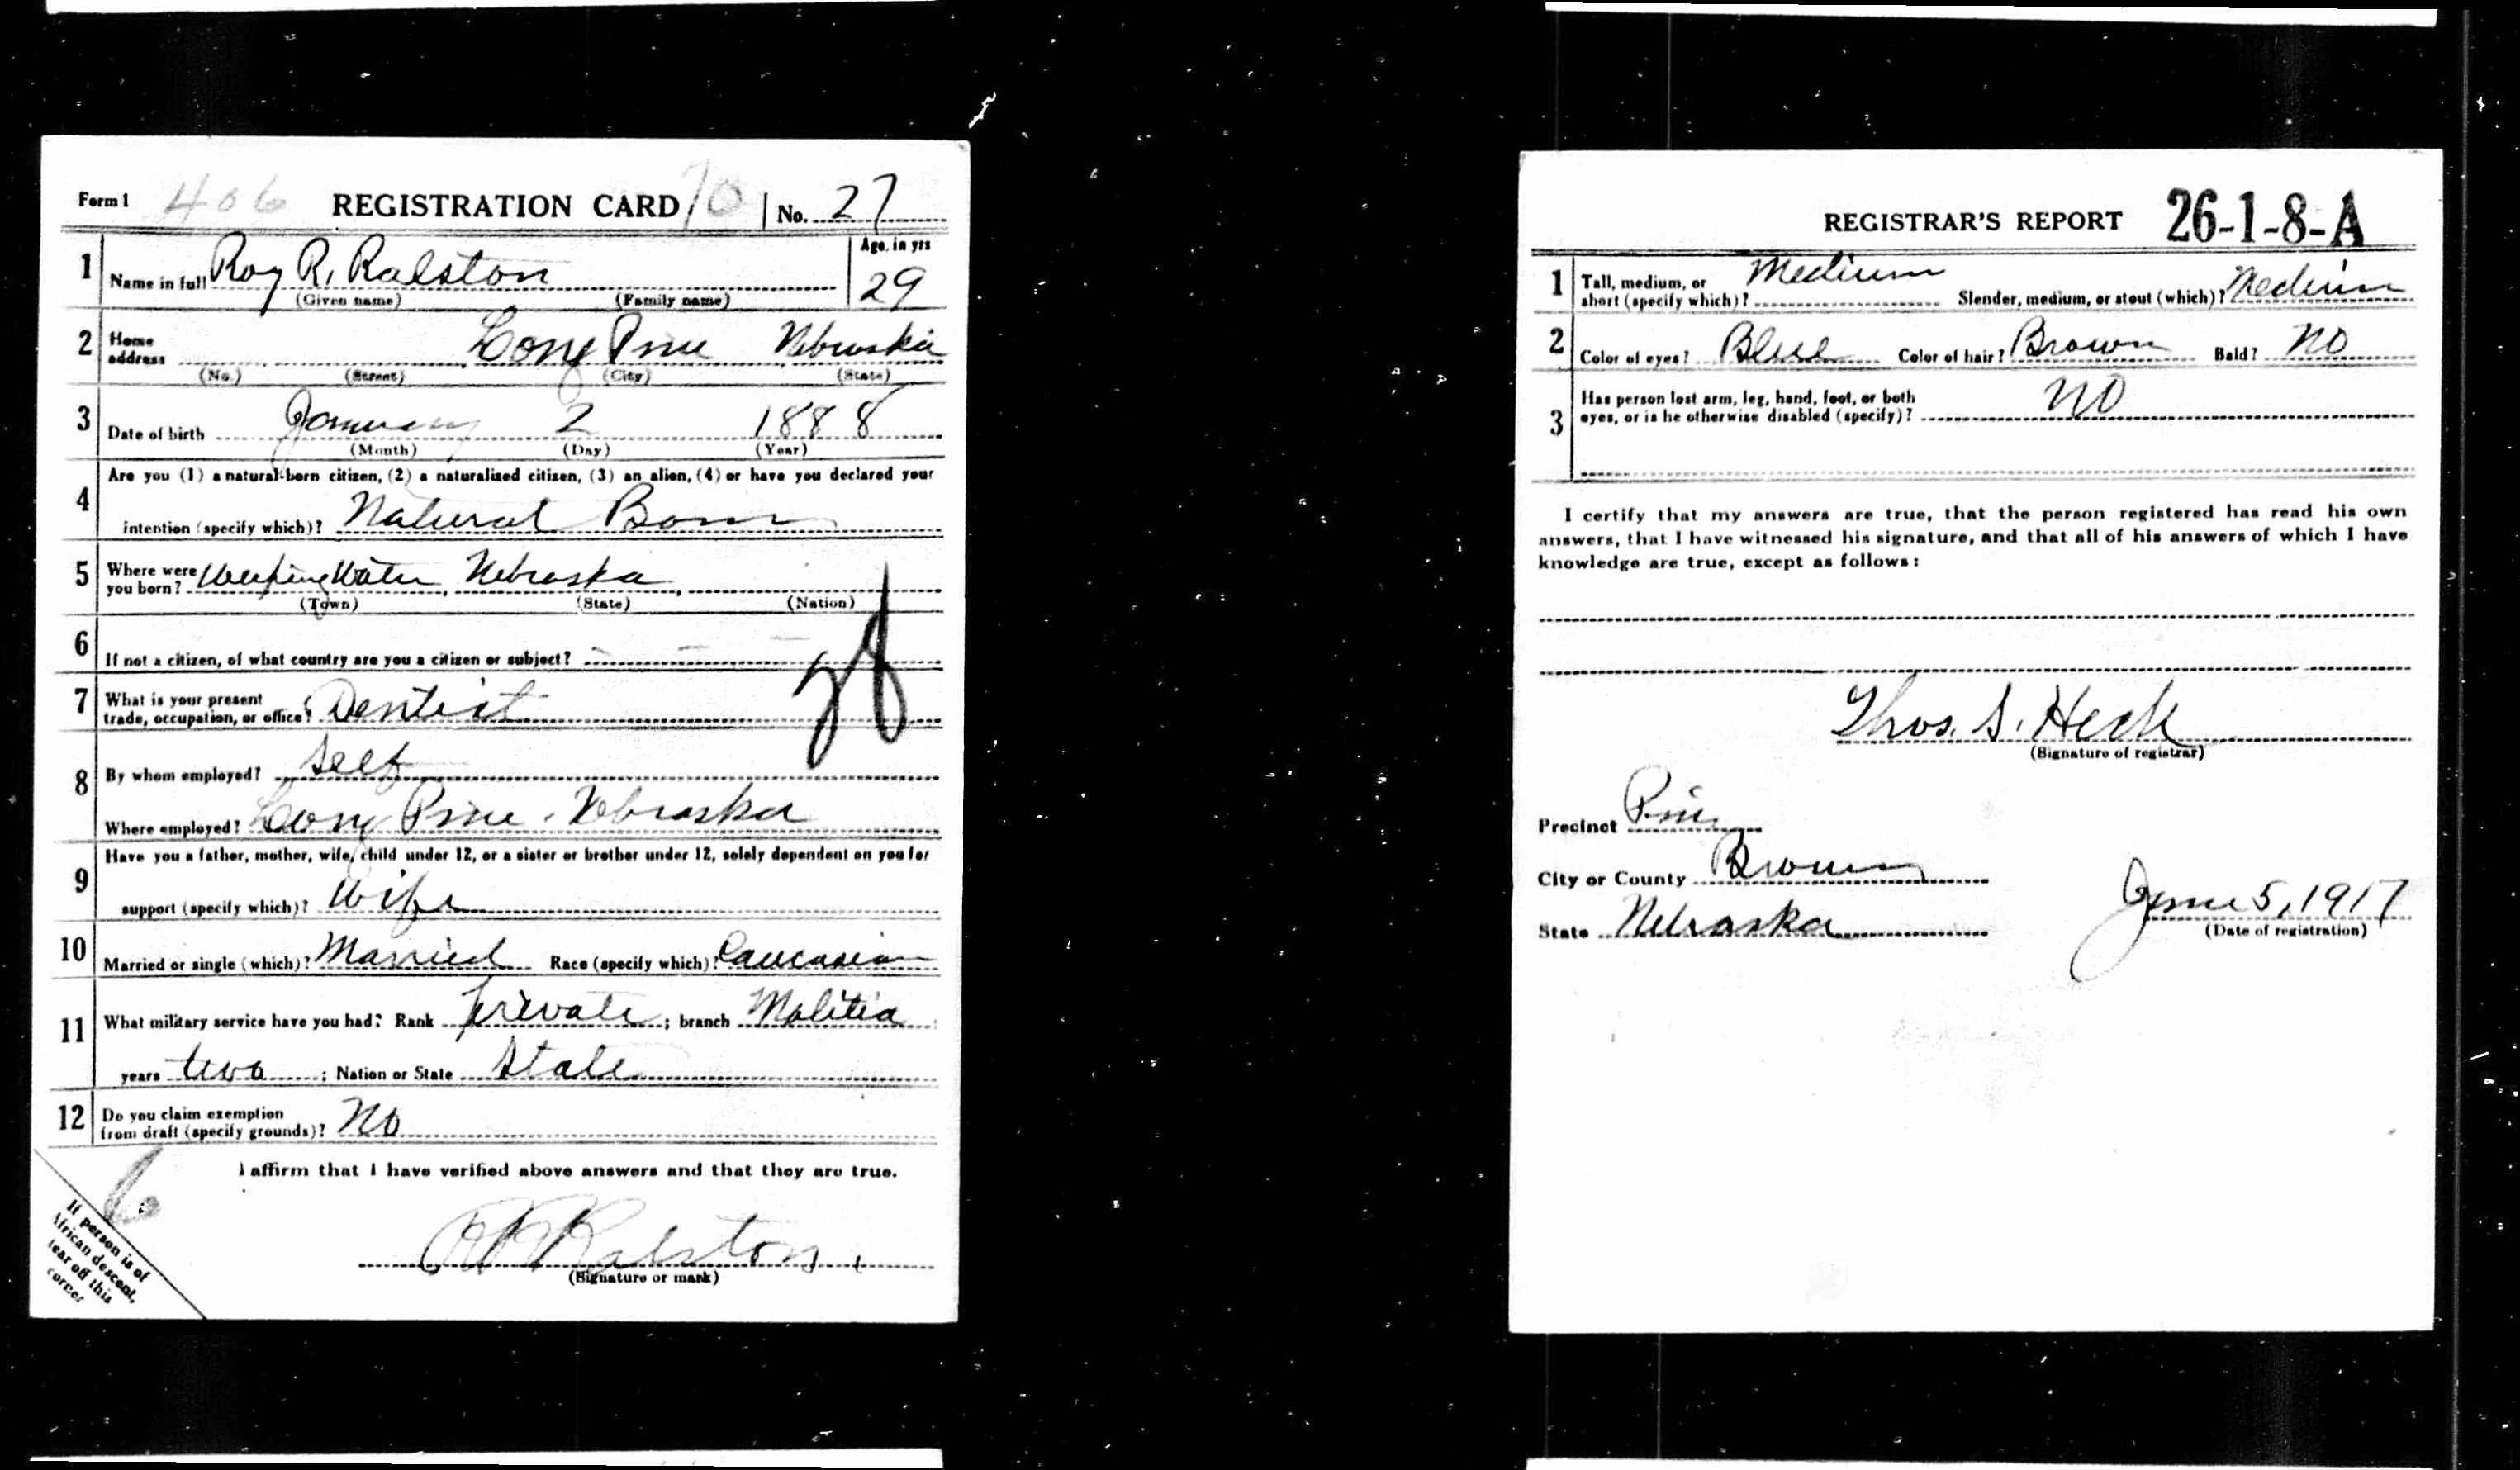 Form 1 406 REGISTRATION CARD 70 No. 27
1 Name in full Roy R. Ralston Age, in yrs 29
(Given name) (Family name)
2 Home address Long Pine Nebraska
(No.) (Street) (City) (State)
3 Date of birth January 2 1888
(Month) (Day) (Year)
4 Are you (1) a natural-born citizen, (2) a naturalized citizen, (3) an alien, (4) or have you declared your
intention (specify which)? Natural Born
5 Where were you born? Weeping Water, Nebraska,
(Town) (State) (Nation)
6 If not a citizen, of what country are you a citizen or subject?
7 What is your present trade, occupation, or office? Dentist
8 By whom employed? Self
Where employed? Long Pine. Nebraska
9 Have you a father, mother, wife, child under 12, or a sister or brother under 12, solely dependent on you for
support (specify which)? Wife
10 Married or single (which)? Married Race (specify which)? Caucasian
11 What military service have you had? Rank Private; branch Malitia
years two; Nation or State State
12 Do you claim exemption from draft (specify grounds)? No
I affirm that I have verified above answers and that they are true.
R R Ralston
(Signature or mark)
If person is of
African descent,
tear off this
corner
REGISTRAR'S REPORT 26-1-8-A
1 Tall, medium, or short (specify which)? Medium Slender, medium, or stout (which)? Medium
2 Color of eyes? Blue Color of hair? Brown Bald? No
3 Has person lost arm, leg, hand, foot, or both eyes, or is he otherwise disabled (specify)? No
I certify that my answers are true, that the person registered has read his own
answers, that I have witnessed his signature, and that all of his answers of which I have
knowledge are true, except as follows:
Thos. S. Heck
(Signature of registrar)
Precinct Pine
City or County Brown
State Nebraska June 5, 1917
(Date of registration)